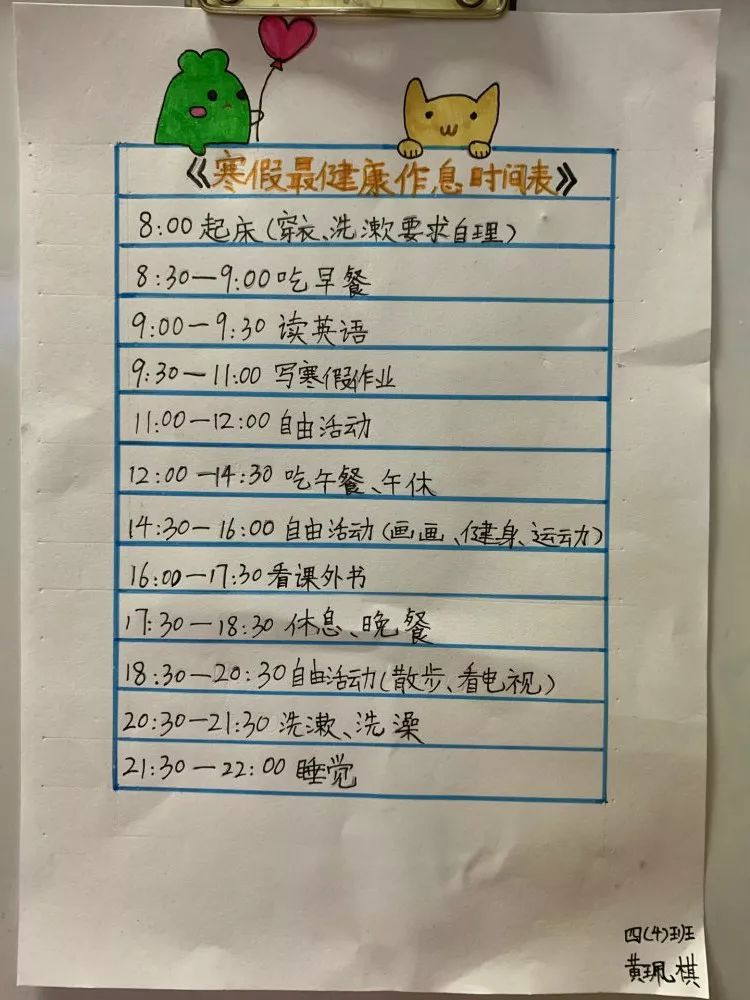 《寒假最健康作息时间表》
8:00 起床(穿衣、洗漱要求自理)
8:30—9:00 吃早餐
9:00—9:30 读英语
9:30—11:00 写寒假作业
11:00—12:00 自由活动
12:00—14:30 吃午餐、午休
14:30—16:00 自由活动(画画、健身、运动)
16:00—17:30 看课外书
17:30—18:30 休息、晚餐
18:30—20:30 自由活动(散步、看电视)
20:30—21:30 洗漱、洗澡
21:30—22:00 睡觉
四(4)班
黄珮棋